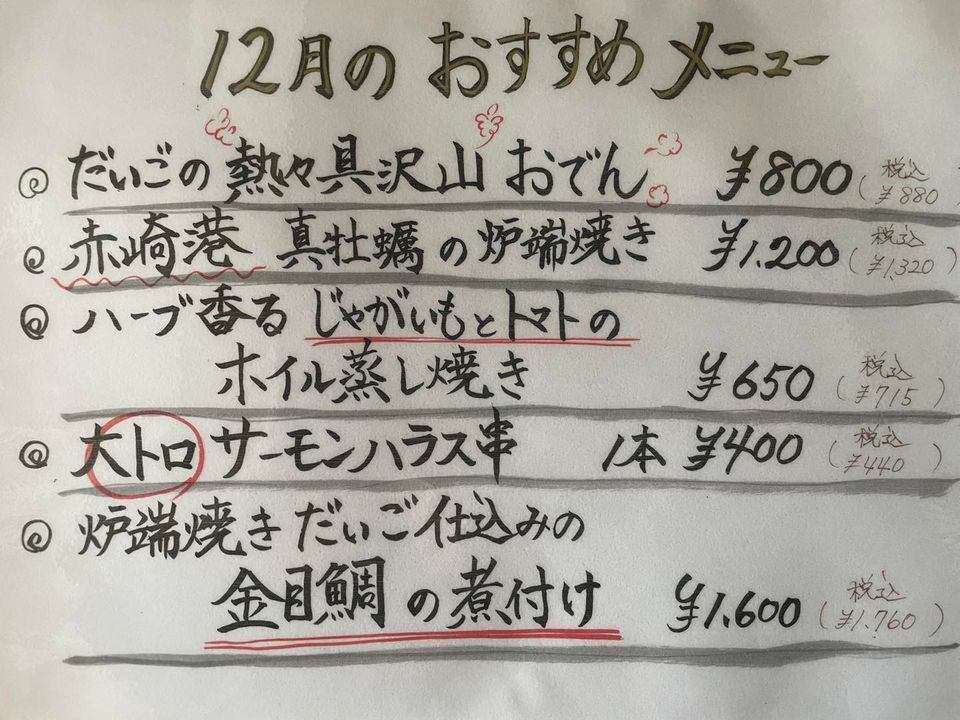 12月のおすすめメニュー
だいごの熱々具沢山おでん ¥800(税込¥880)
赤崎港 真牡蠣の炉端焼き ¥1.200(税込¥1,320)
ハーブ香るじゃがいもとトマトの
ホイル蒸し焼き ¥650(税込¥715)
大トロサーモンハラス串 1本 ¥400(税込¥440)
炉端焼きだいご仕込みの
金目鯛の煮付け ¥1.600(税込¥1.760)